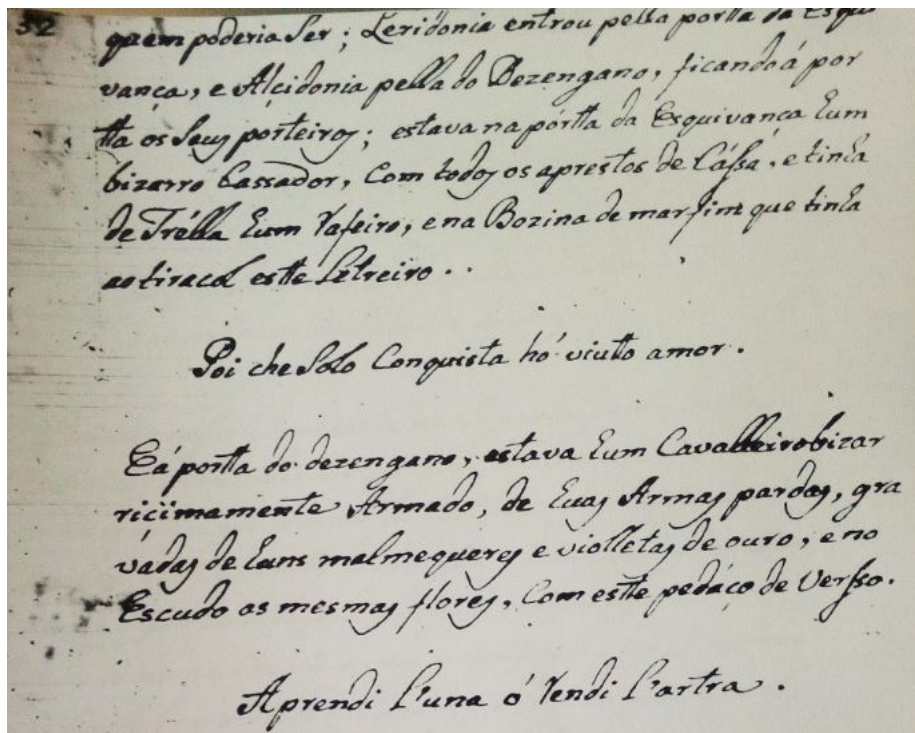 32
quem poderia ser; Leridonia entrou pella portta da Esqui
vança, e Alcidonia pella do Dezengano, ficandoá por
tta os seus porteiros; estava na pórtta da Esquivança hum
bizarro Cassador, Com todos os aprestos de Cássa, e tinha
de Trélla hum Rafeiro, e na Bozina de marfim que tinha
ao tiracol estte Letreiro..
Poi che Solo Conquista hó viutto amor.
Eá portta do dezengano, estava hum Cavalleiro bizar
riçimamente Armado, de huas Armas pardas, gra
vádas de huns malmequeres e violletas de ouro, e no
Escudo as mesmas flores, Com estte pedáço de Versso.
Aprendi l'una ó Rendi l'artra.